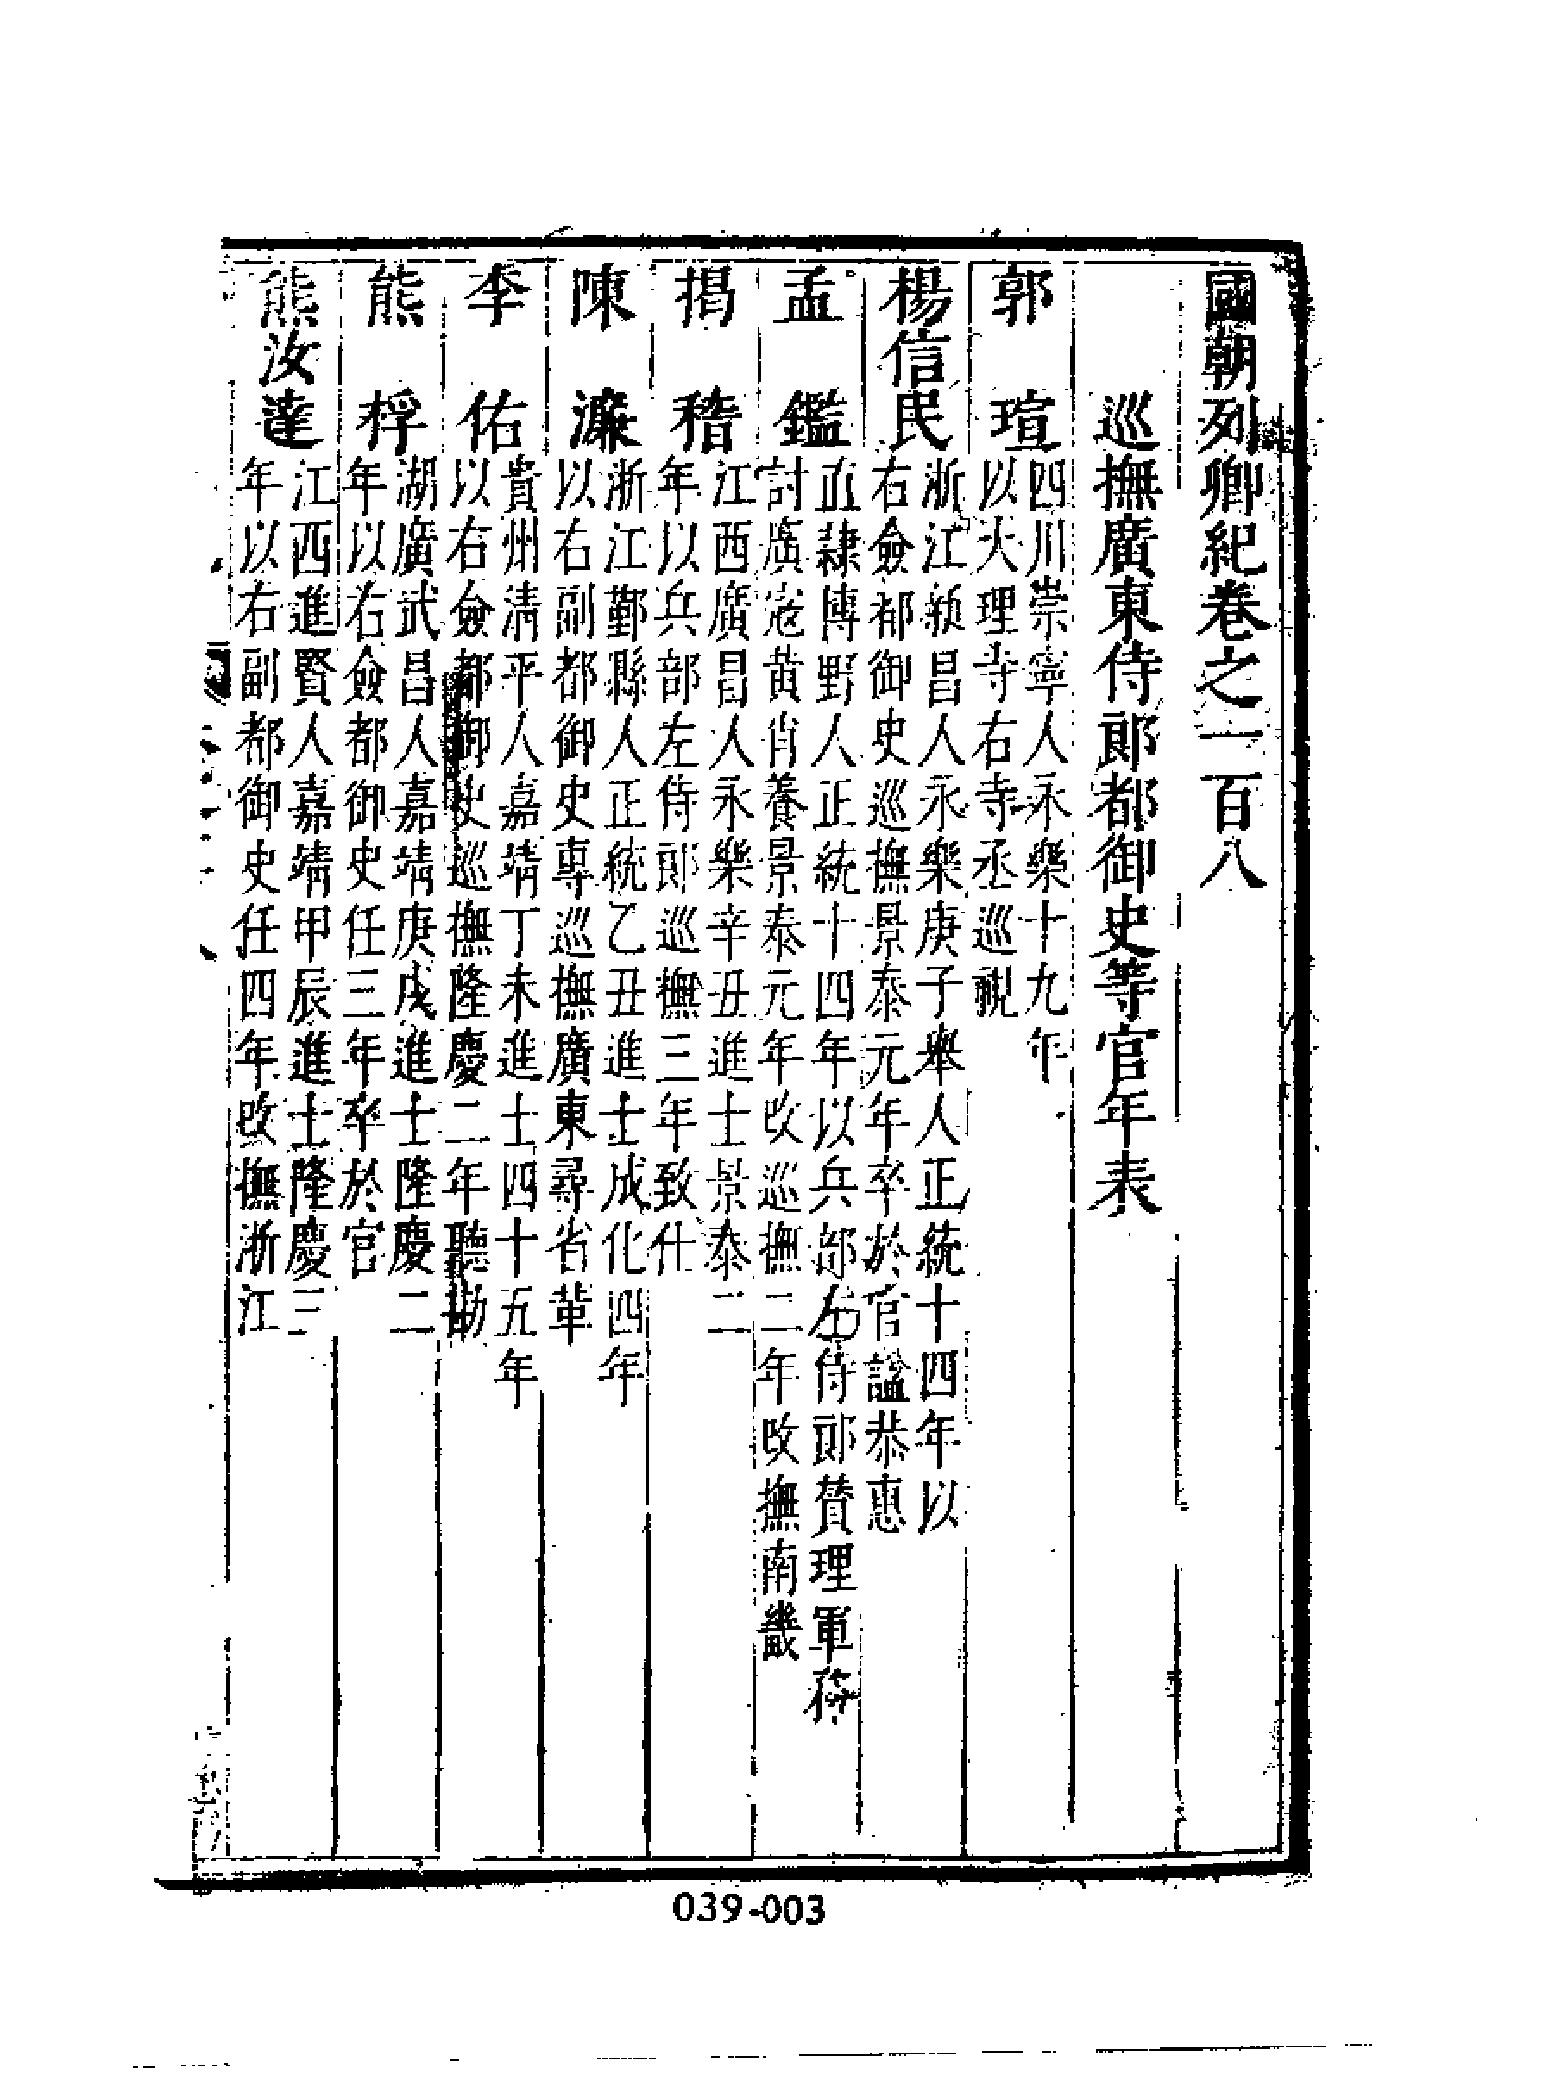 國朝列卿紀卷之一百八
巡撫廣東侍郎都御史等官年表
郭瑄
四川崇寧人永樂十九年
以大理寺右寺丞巡視
楊信民
浙江新昌人永樂庚子舉人正統十四年以
右僉都御史巡撫景泰元年卒於官諡恭惠
孟鑑
直隸博野人正統十四年以兵部左侍郎贊理軍務
討廣寇黃肖養景泰元年改巡撫二年改撫南畿
揭稽
江西廣昌人永樂辛丑進士景泰二
年以兵部左侍郎巡撫三年致仕
陳濂
浙江鄞縣人正統乙丑進士成化四年
以右副都御史專巡撫廣東尋省革
李佑
貴州清平人嘉靖丁未進士四十五年
以右僉都御史巡撫隆慶二年聽勘
熊桴
湖廣武昌人嘉靖庚戌進士隆慶二
年以右僉都御史任三年卒於官
熊汝達
江西進賢人嘉靖甲辰進士隆慶三
年以右副都御史任四年改撫浙江
039-003